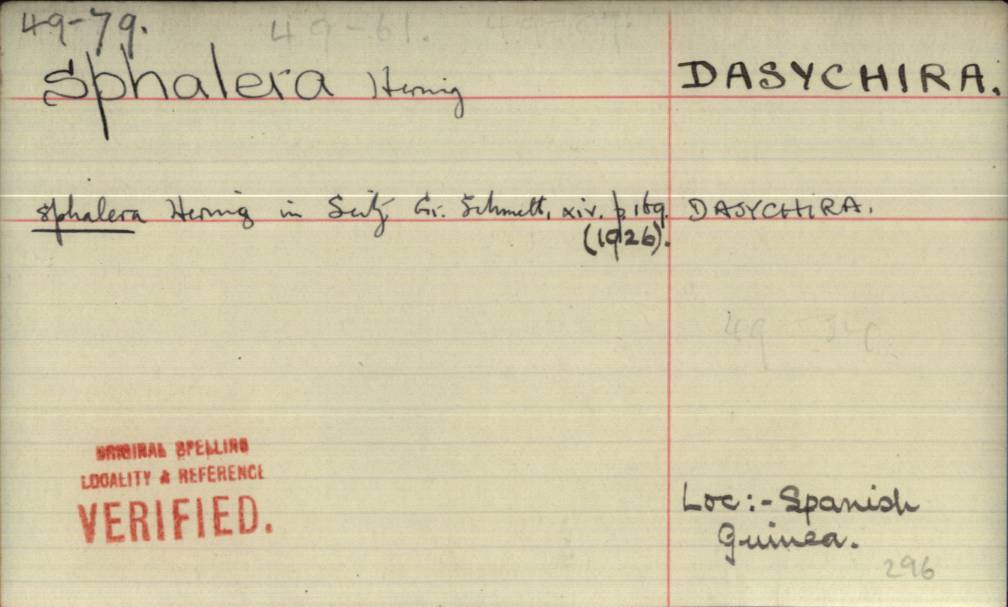 49-79. 49-61.
Sphalera Hering DASYCHIRA.
sphalera Hering in Seitz Gr. Schmett, xiv. p 169. DASYCHIRA.
(1926).
ORIGINAL SPELLING
LOCALITY & REFERENCE
VERIFIED.
Loc:- Spanish
Guinea.
296